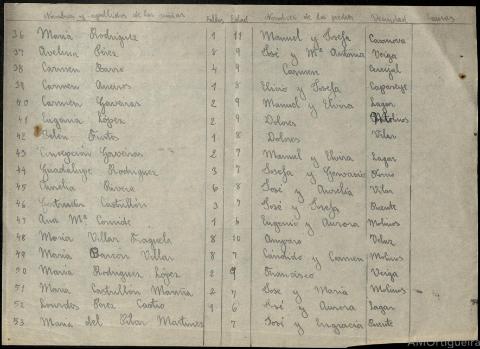 Nombres y apellidos de las niñas Faltas Edad Nombres de los padres Vecindad Causas
36 María Rodríguez 1 11 Manuel y Josefa Casanova
37 Avelina Pérez 8 9 José y Mª Antonia Veiga
38 Carmen Barro 4 9 Carmen
39 Carmen Aneiros 1 8 Elisio y Josefa
40 Carmen Gaveiras 2 9 Manuel y Elvira Lagar
41 Eugenia López 2 9 Dolores Molinos
42 Belén Fustes 1 8 Dolores Vilar
43 Concepción Gaveiras 2 7 Manuel y Elvira Lagar
44 Guadalupe Rodríguez 3 7 Josefa y
45 Amelia Rivera 6 8 José y Aurelia Vilar
46 Gertrudis Castrillón 3 7 José y Josefa Puente
47 Ana Mª Cornide 1 6 Eugenio y Aurora Molinos
48 María Villar Fraguela 8 10 Amparo
49 María Barcón Villar 8 7 Cándido y Carmen Molinos
50 María Rodríguez López 2 9 Francisca Veiga
51 María Castrillón 2 7 José y María Molinos
52 Lourdes Pérez Castro 9 6 José y Aurora Lagar
53 María del Pilar Martínez 7 José y Engracia Puente
AMOrtigueira